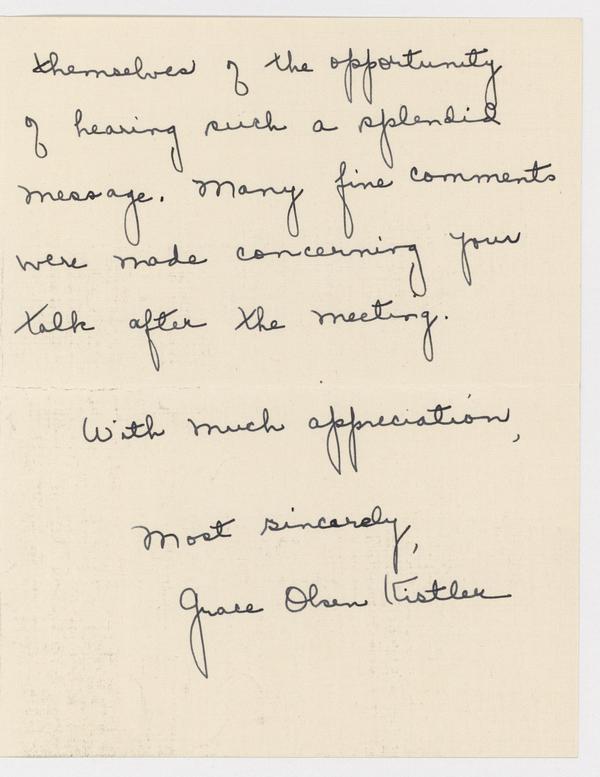 themselves of the opportunity
of hearing such a splendid
message. Many fine comments
were made concerning your
talk after the meeting.
With much appreciation,
Most sincerely,
Grace Olsen Kistler